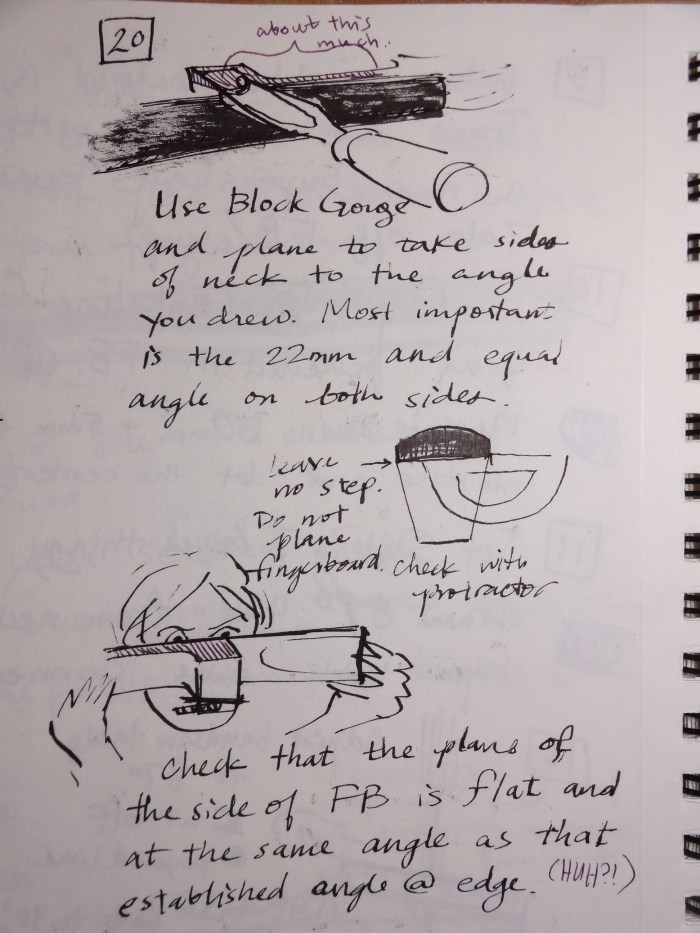 20
about this
much.
Use Block Gouge
and plane to take sides
of neck to the angle
you drew. Most important
is the 22mm and equal
angle on both sides.
leave
no step.
Do not
plane
fingerboard.
Check with
protractor
Check that the plane of
the side of FB is flat and
at the same angle as that
established angle @ edge. (HUH?!)